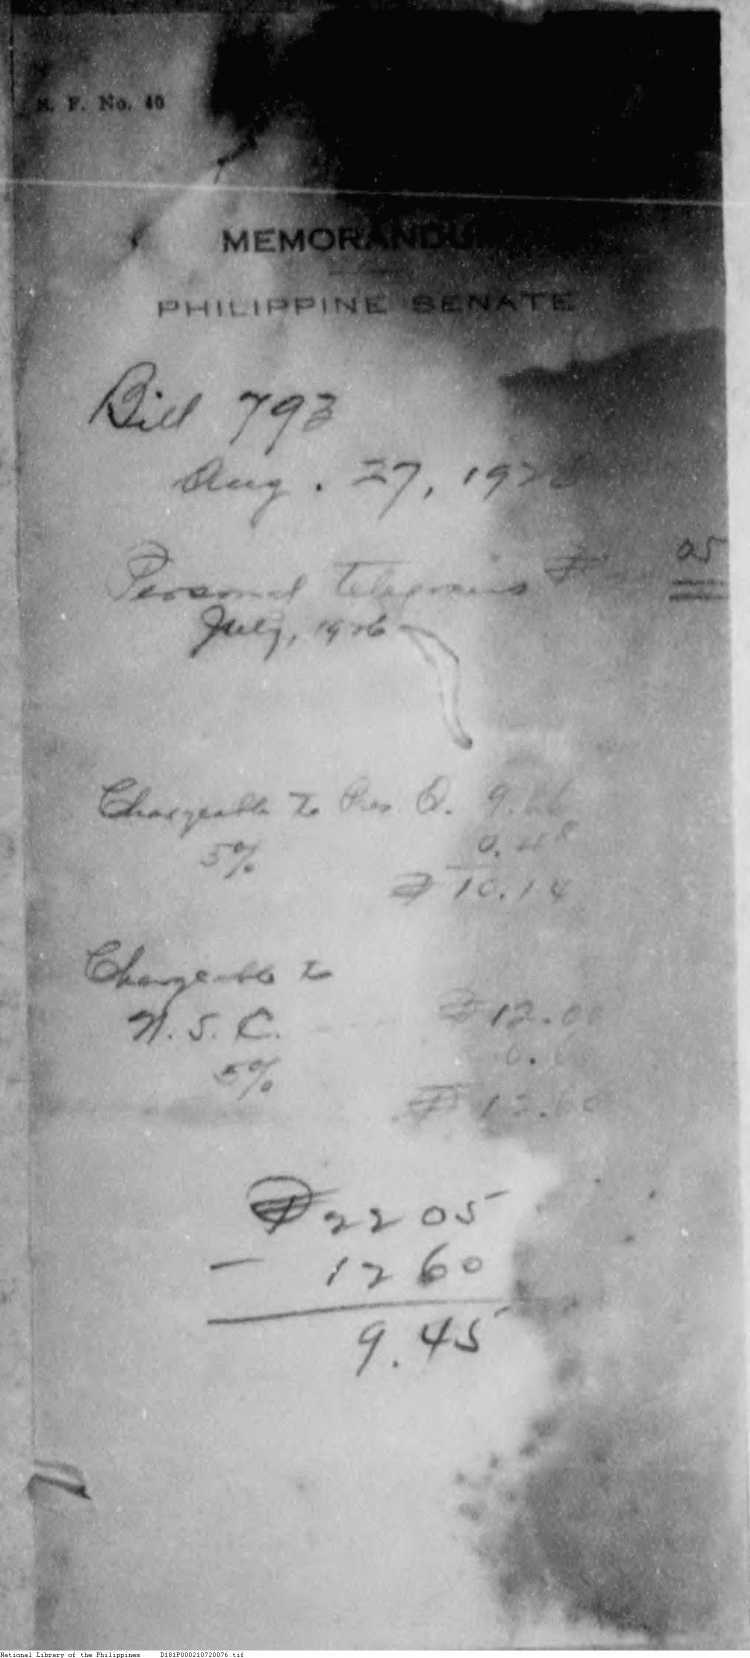 S. F. No. 40
MEMORANDUM
PHILIPPINE SENATE
Bill 793
Aug. 27, 192
Personal telegrams ₱ 05
July, 1926
Chargeable to Pres Q. 9.
5% 0.48
₱ 10.14
Chargeable to
N. S. C. ₱ 12.00
5% 0.
₱ 12.60
₱ 22 05
- 12 60
9.45
National Library of the Philippines D181P000210720076.tif